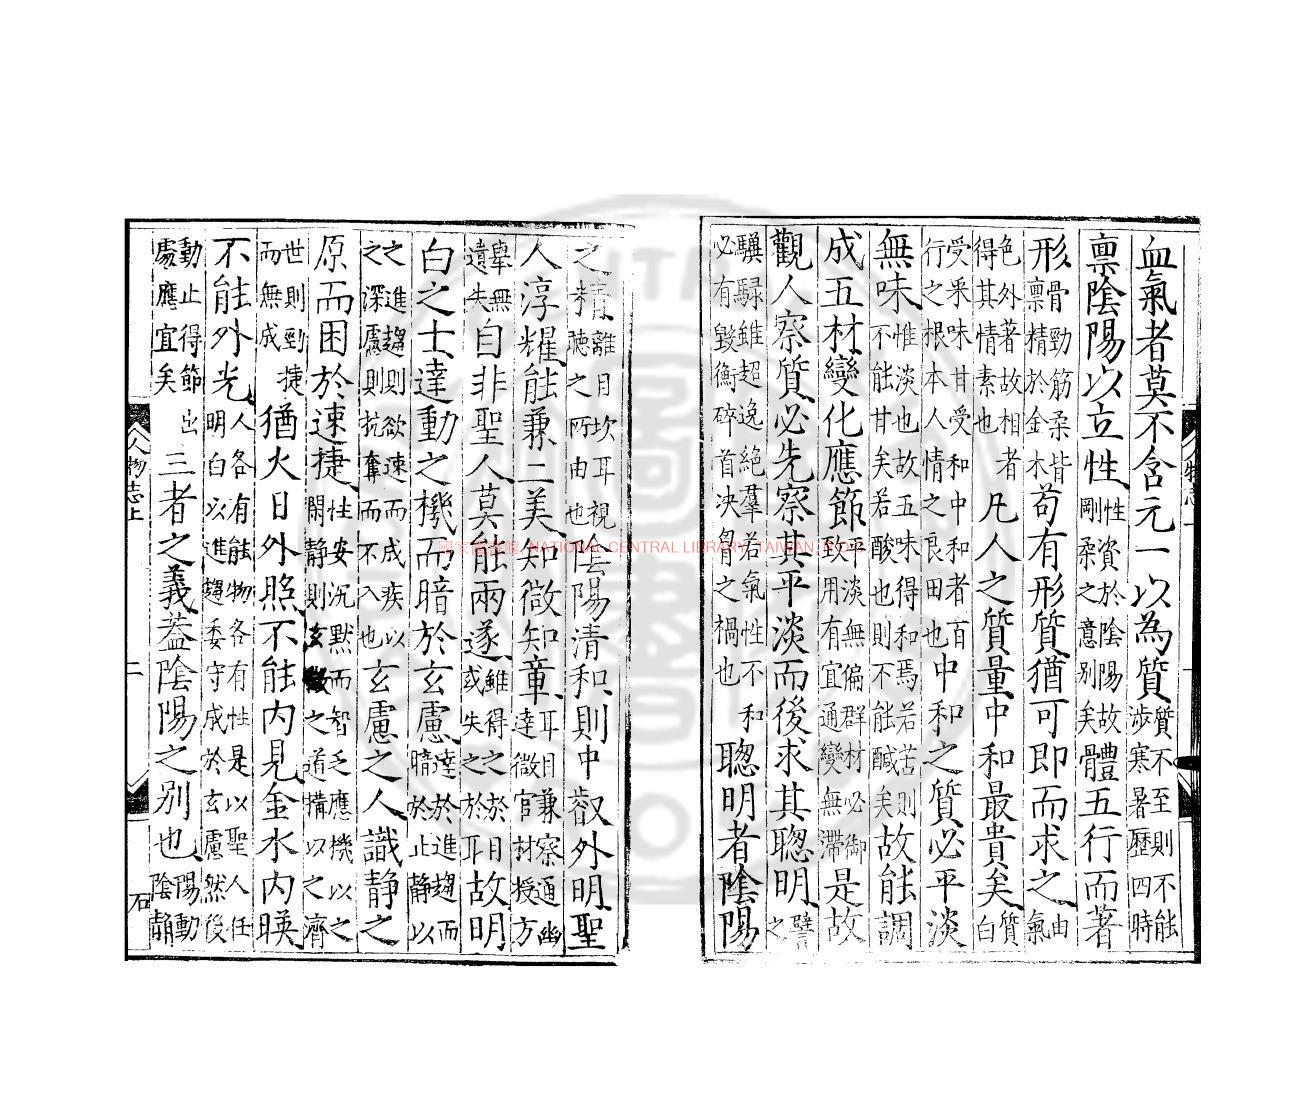 血氣者莫不含元一以為質質不至則不能涉寒暑歷四時
稟陰陽以立性性資於陰陽故剛柔之意別矣體五行而著
形骨勁筋柔皆稟精於金木苟有形質猶可即而求之由氣
色外著故相者得其情素也凡人之質量中和最貴矣質白
受采味甘受和中和者百行之根本人情之良田也中和之質必平淡
無味惟淡也故五味得和焉若苦則不能甘矣若酸也則不能醎矣故能調
成五材變化應節平淡無偏群材必御致用有宜通變無滯是故
觀人察質必先察其平淡而後求其聰明譬之
驥騄雖超逸絶羣若氣性不和必有毀衡碎首决胷之禍也聰明者陰陽
之精離目坎耳視聽之所由也陰陽清和則中叡外明聖
人淳耀能兼二美知微知章耳目兼察通幽達微官材授方
舉無遺失自非聖人莫能兩遂雖得之於目或失之於耳故明
白之士達動之機而暗於玄慮達於進趨而暗於止静以
之進趨則欲速而成疾以之深慮則抗奪而不入也玄慮之人識静之
原而困於速捷性安沉黙而智乏應機以之閑静則玄微之道搆以之濟
世則勁捷而無成猶火日外照不能内見金水内暎
不能外光人各有能物各有性是以聖人任明白以進趨委守成於玄慮然後
動止得節出處應宜矣三者之義葢陰陽之別也陽動陰静
人物志上
二
石
NATIONAL CENTRAL LIBRARY, TAIWAN